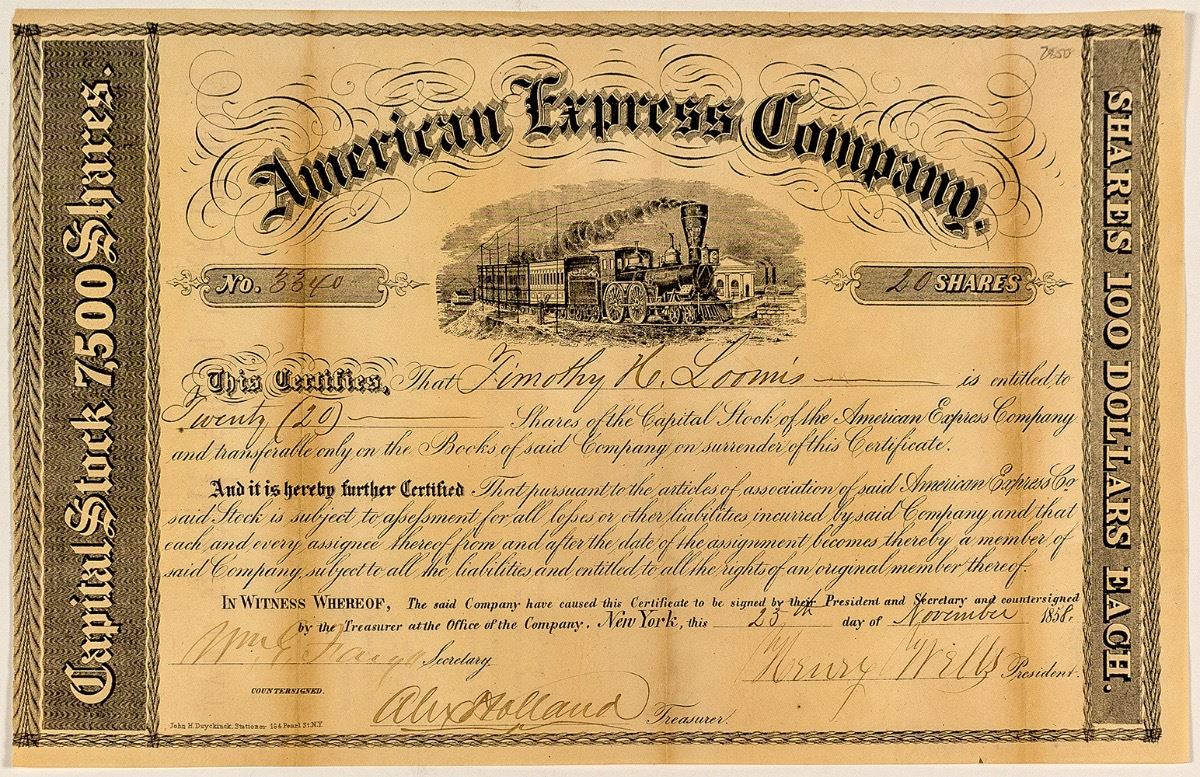 7850
American Express Company.
Capital Stock 7,500 Shares.
SHARES 100 DOLLARS EACH.
No. 3340
20 SHARES
This Certifies, That Timothy H. Loomis is entitled to
Twenty (20) Shares of the Capital Stock of the American Express Company
and tranferable only on the Books of said Company on surrender of this Certificate.
And it is hereby further Certified That pursuant to the articles of association of said American Express Co.
said Stock is subject to assessment for all losses or other liabilities incurred by said Company and that
each and every assignee thereof from and after the date of the assignment becomes thereby a member of
said Company, subject to all the liabilities and entitled to all the rights of an original member thereof.
IN WITNESS WHEREOF, The said Company have caused this Certificate to be signed by their President and Secretary and countersigned
by the Treasurer at the Office of the Company. New York, this 25th day of November 1858.
Wm G Fargo Secretary
Henry Wells President.
COUNTERSIGNED.
Alex Holland Treasurer.
John H. Duyckinck, Stationer 164 Pearl St. N.Y.